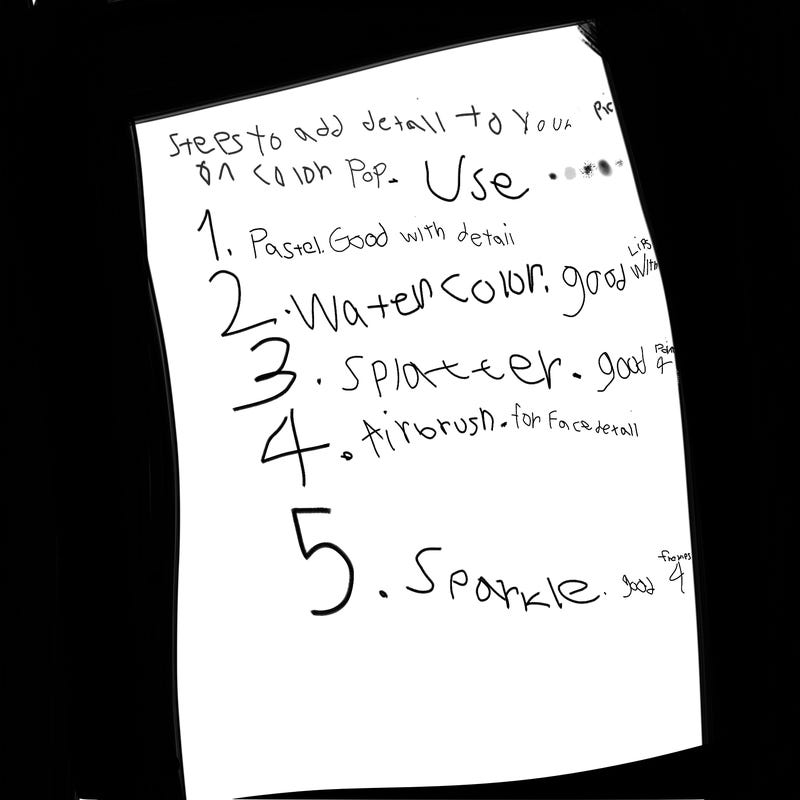 Steps to add detail to your pic
on color Pop. Use
1. Pastel. Good with detail
2. Watercolor. good with Lips
3. Splatter. good 4
4. Airbrush. for Face detail
5. Sparkle. good 4 frames